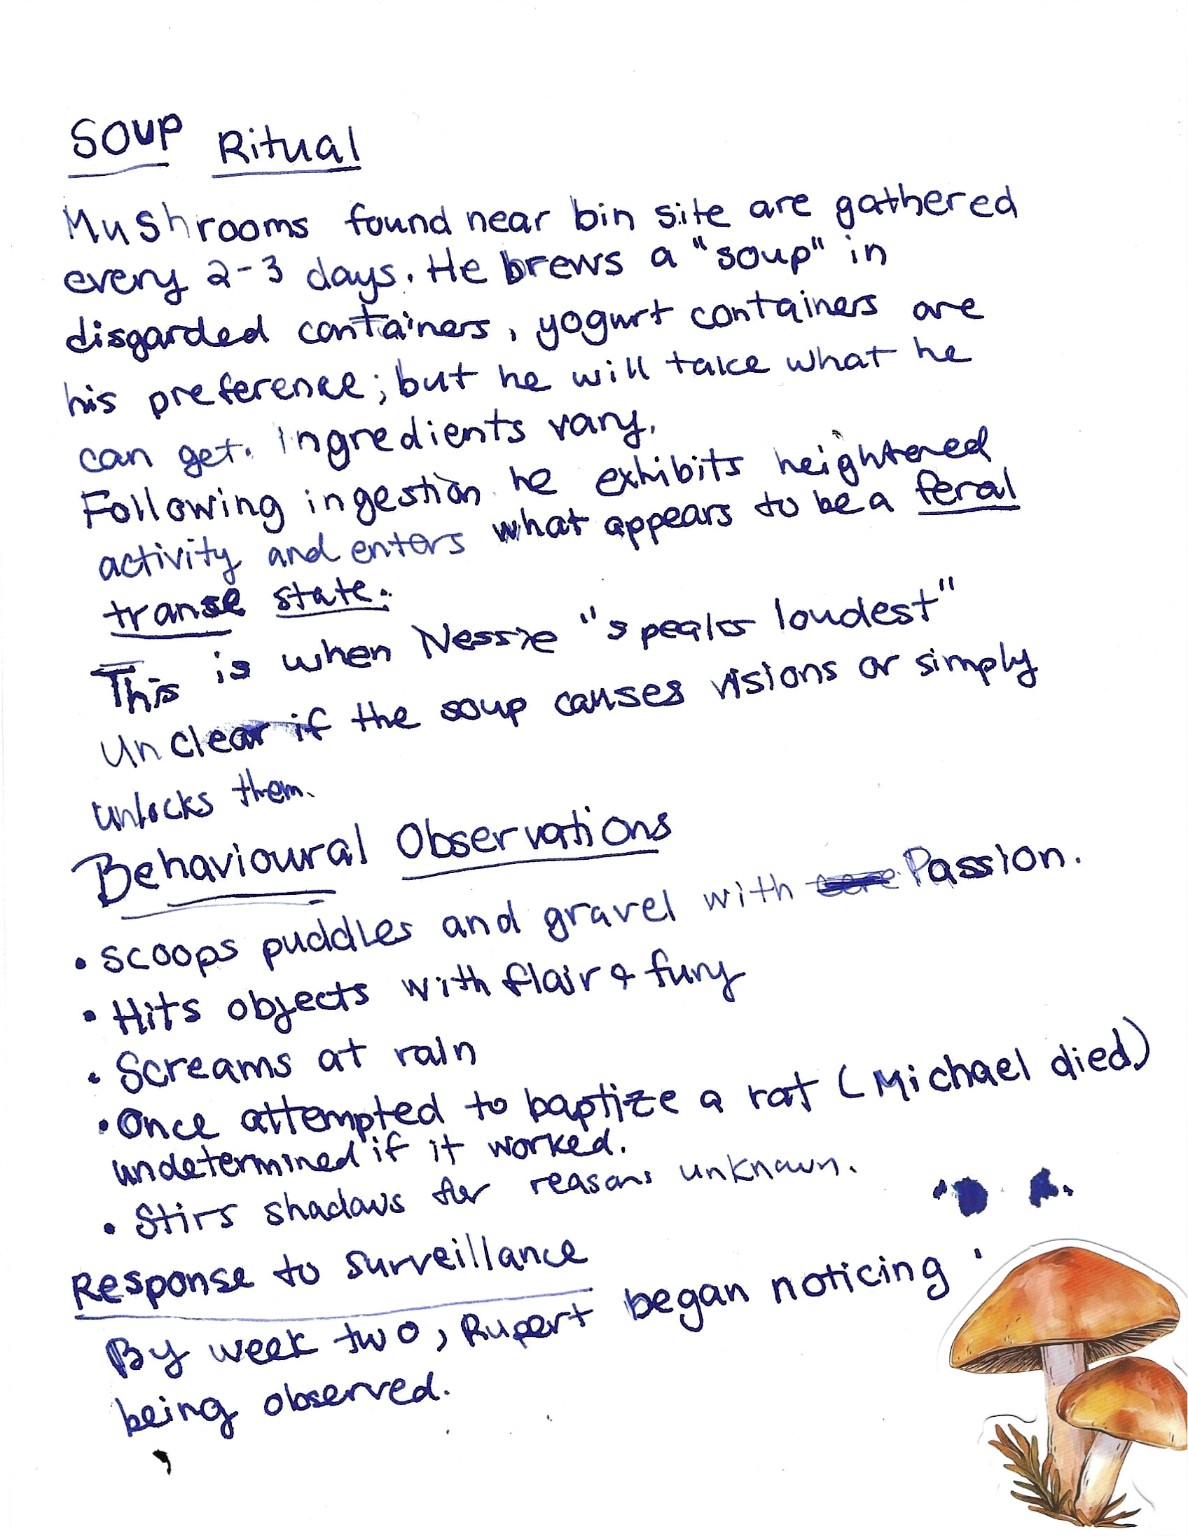 Soup Ritual
Mushrooms found near bin site are gathered
every 2-3 days. He brews a "soup" in
disgarded containers, yogurt containers are
his preference; but he will take what he
can get. Ingredients vary.
Following ingestion he exhibits heightened
activity and enters what appears to be a feral
transe state.
This is when Nessie "speaks loudest"
Unclear if the soup causes visions or simply
unlocks them.
Behavioural Observations
• Scoops puddles and gravel with Passion.
• Hits objects with flair & fury
• Screams at rain
• Once attempted to baptize a rat (Michael died)
undetermined if it worked.
• Stirs shadows for reasons unknown.
Response to Surveillance
By week two, Rupert began noticing
being observed.